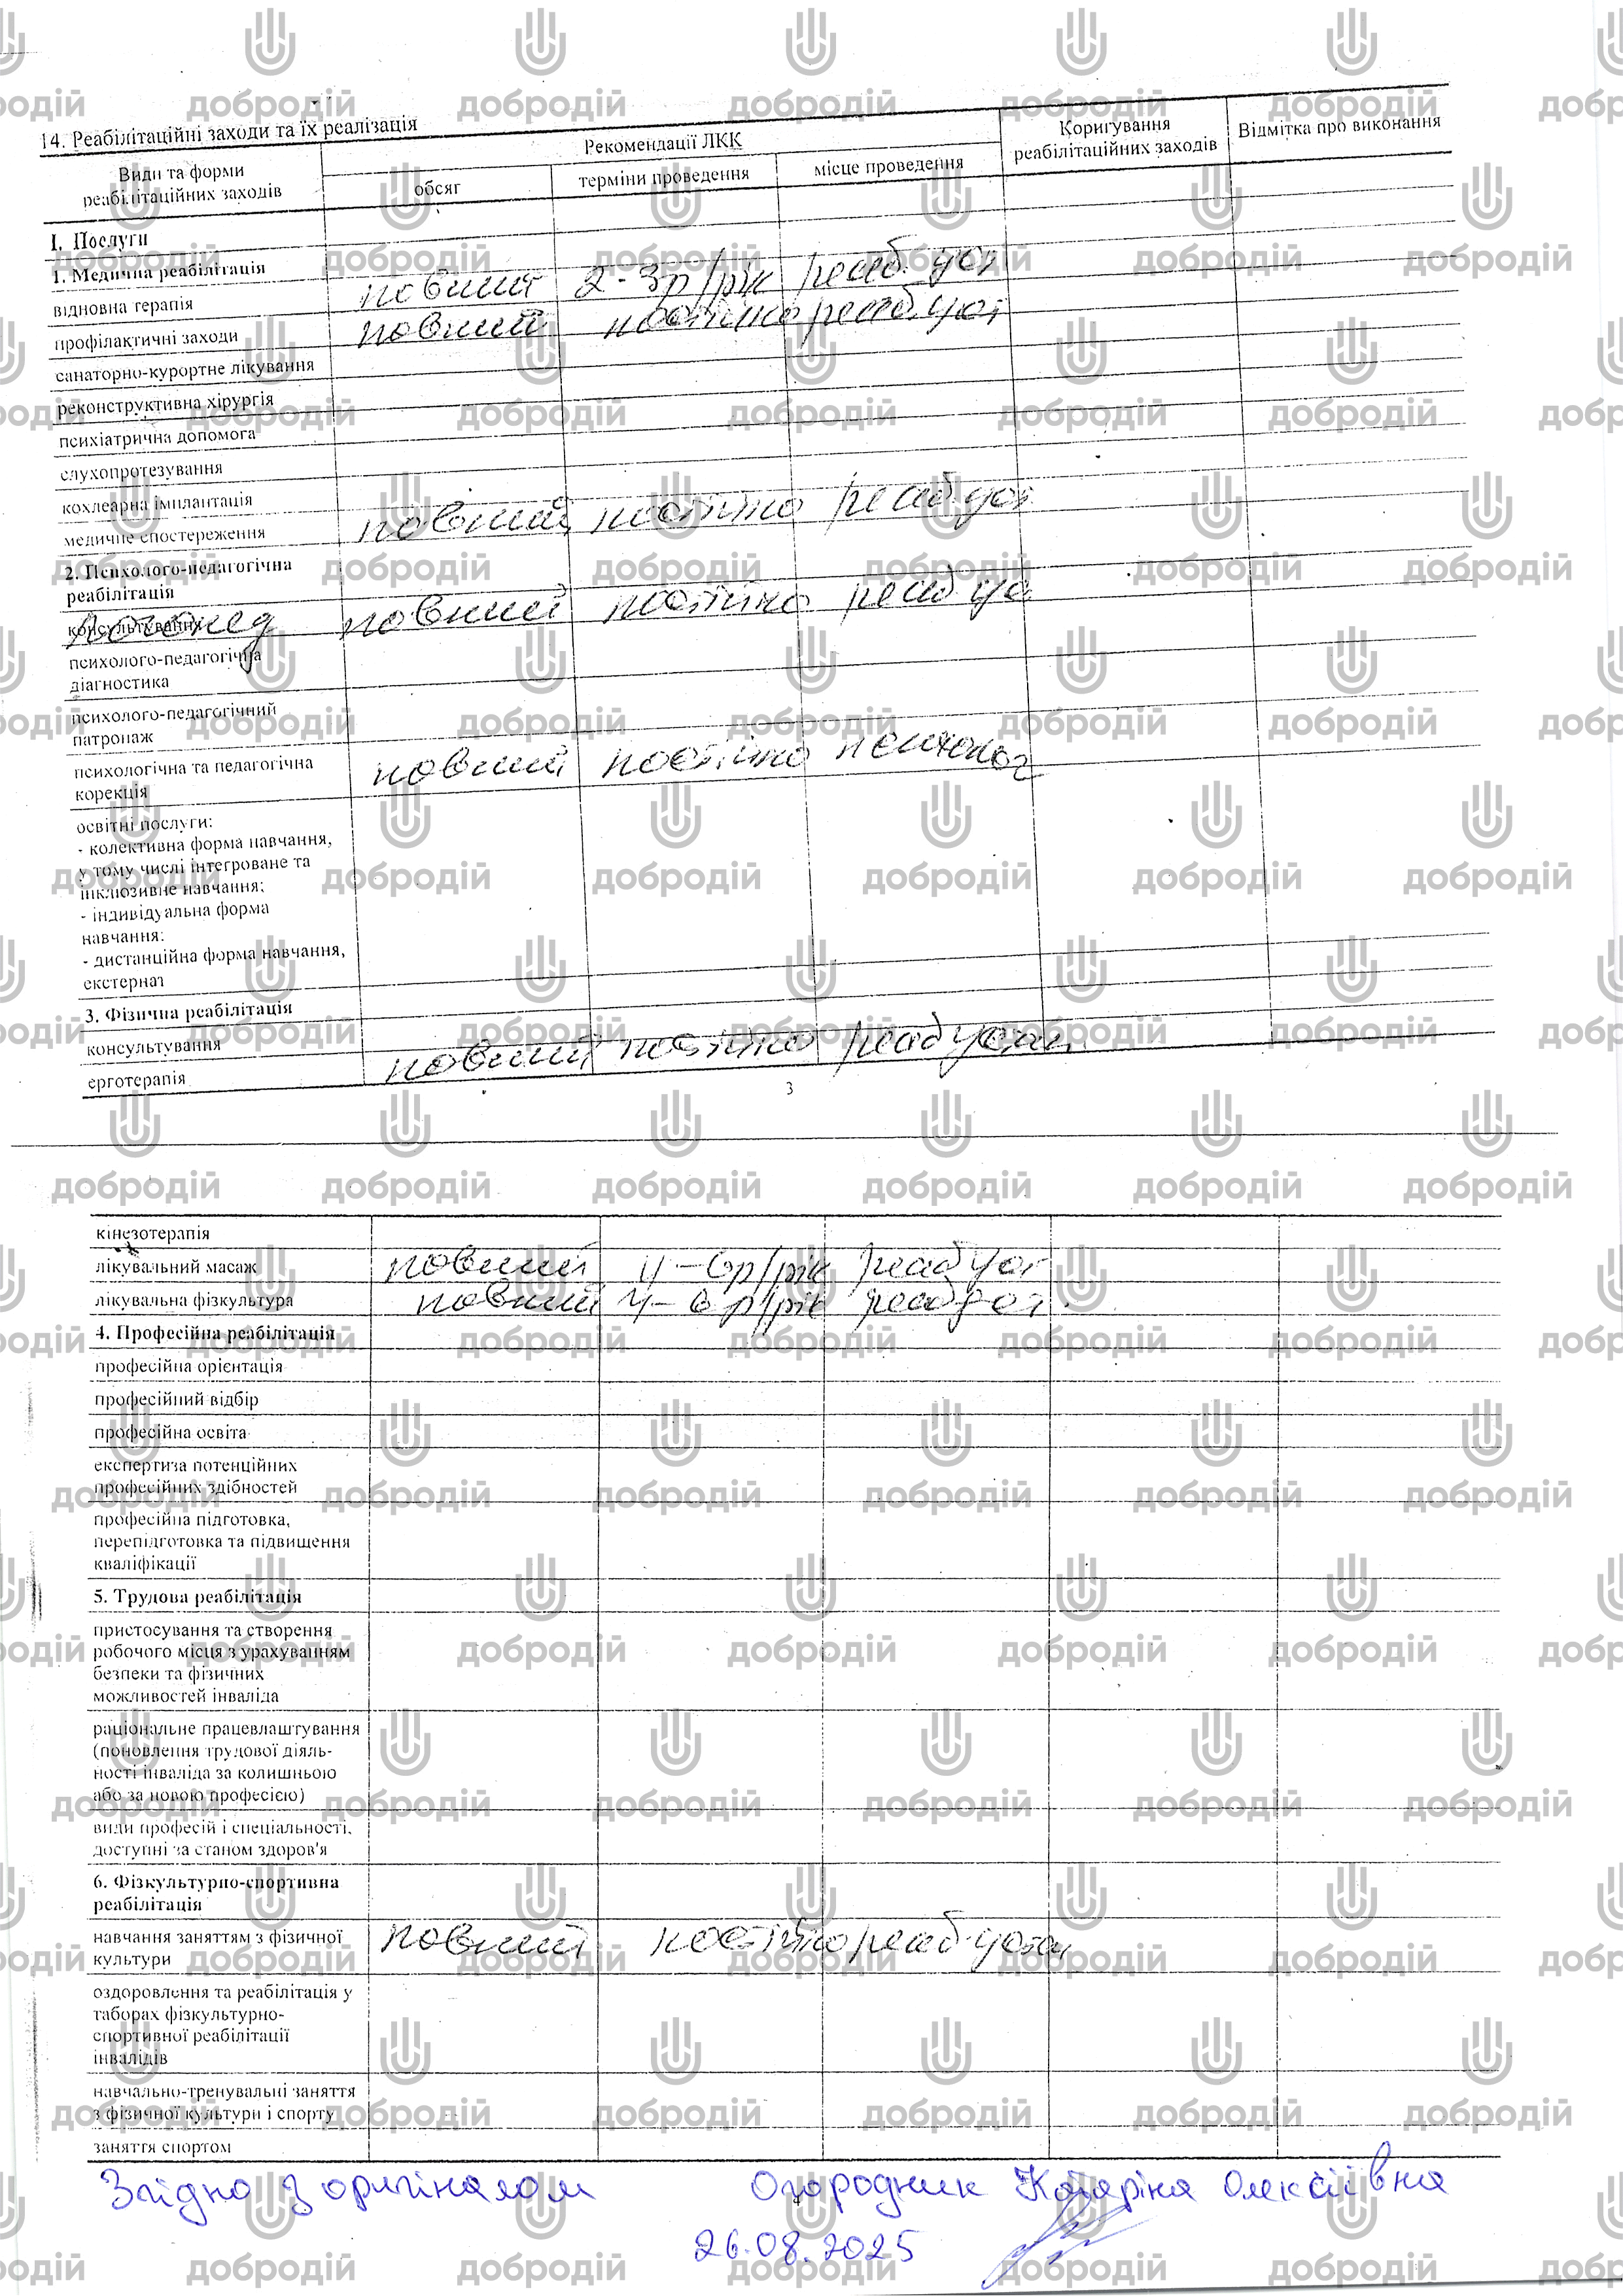 14. Реабілітаційні заходи та їх реалізація
Види та форми реабілітаційних заходів
Рекомендації ЛКК
Коригування реабілітаційних заходів
Відмітка про виконання
обсяг
терміни проведення
місце проведення
I. Послуги
1. Медична реабілітація
відновна терапія повний 2-3р/рік реаб. уст
профілактичні заходи повний постійно реаб уст
санаторно-курортне лікування
реконструктивна хірургія
психіатрична допомога
слухопротезування
кохлеарна імплантація
медичне спостереження повний постійно реаб уст
2. Психолого-педагогічна
реабілітація
консультування Логопед повний постійно реаб
психолого-педагогічна
діагностика
психолого-педагогічний
патронаж
психологічна та педагогічна
корекція повний постійно психолог
освітні послуги:
- колективна форма навчання,
у тому числі інтегроване та
інклюзивне навчання;
- індивідуальна форма
навчання:
- дистанційна форма навчання,
екстернат
3. Фізична реабілітація
консультування
ерготерапія повний постійно реаб
3
кінезотерапія
лікувальний масаж повний 4-6р/рік реаб уст
лікувальна фізкультура повний 4-6р/рік реаб уст
4. Професійна реабілітація
професійна орієнтація
професійний відбір
професійна освіта
експертиза потенційних
професійних здібностей
професійна підготовка,
перепідготовка та підвищення
кваліфікації
5. Трудова реабілітація
пристосування та створення
робочого місця з урахуванням
безпеки та фізичних
можливостей інваліда
раціональне працевлаштування
(поновлення трудової діяль-
ності інваліда за колишньою
або за новою професією)
види професій і спеціальності,
доступні за станом здоров'я
6. Фізкультурно-спортивна
реабілітація
навчання заняттям з фізичної
культури повний постійно реаб
оздоровлення та реабілітація у
таборах фізкультурно-
спортивної реабілітації
інвалідів
навчально-тренувальні заняття
з фізичної культури і спорту
заняття спортом
Згідно з оригіналом Огородник Катаріна Олексіївна
4
26.08.2025
добродій